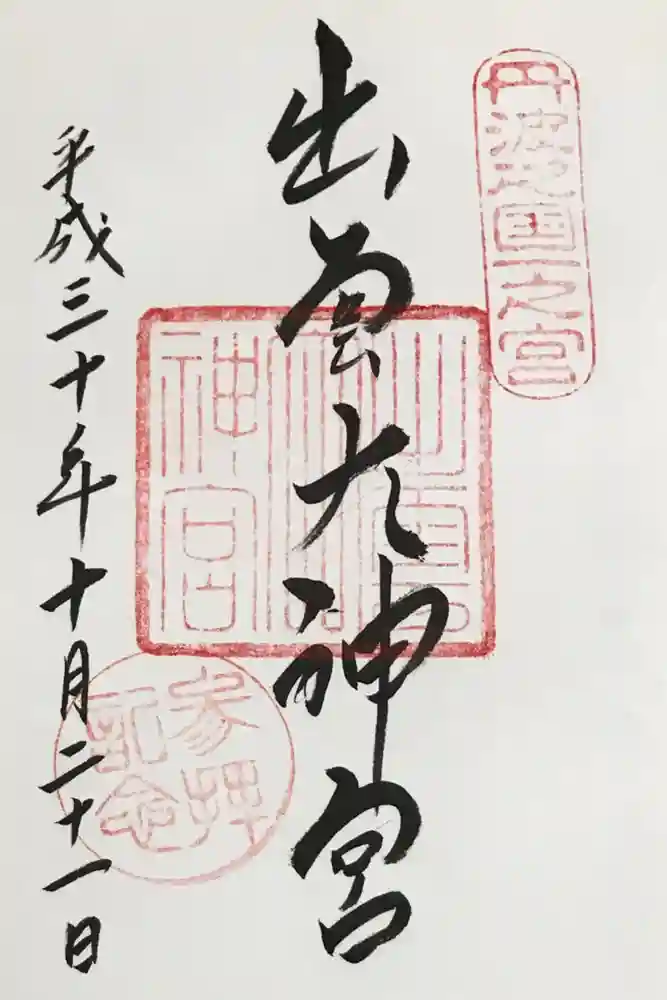 丹波國一之宮
出雲大神宮
参拝
記念
平成三十年十月二十一日